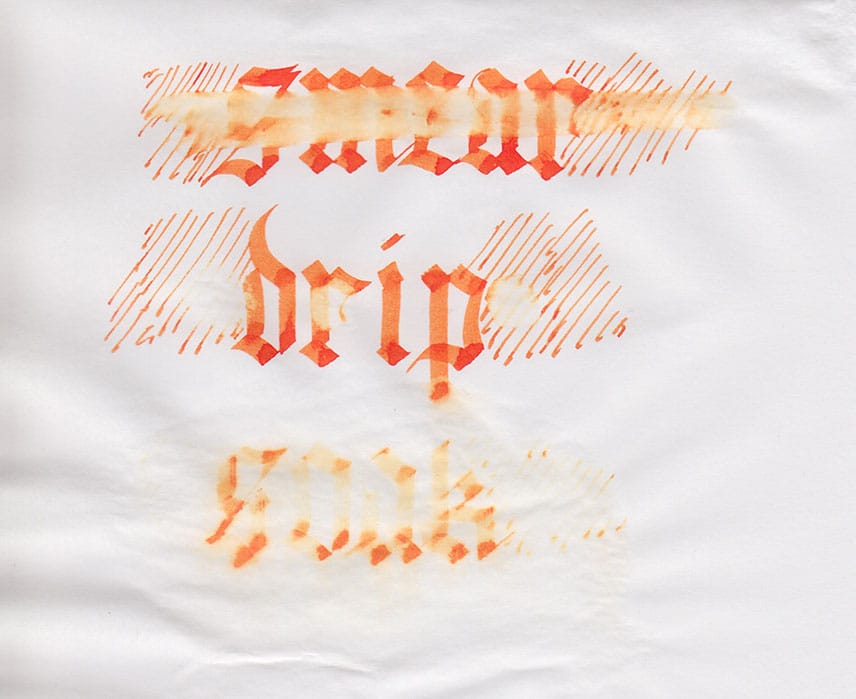 smear
drip
soak